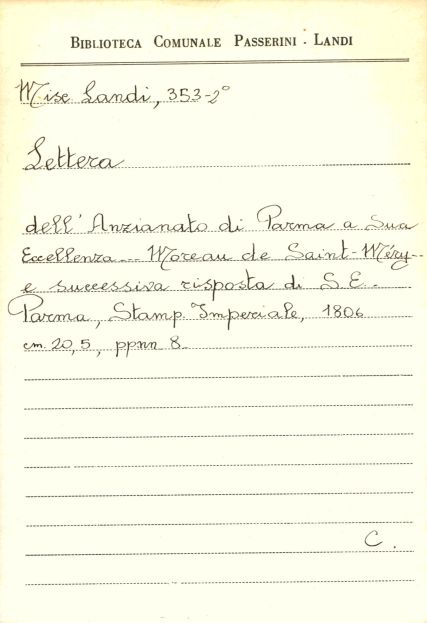 BIBLIOTECA COMUNALE PASSERINI - LANDI
Misc Landi, 353-2°
Lettera
dell'Anzianato di Parma a Sua
Eccellenza... Moreau de Saint-Méry..
e successiva risposta di S.E.
Parma, Stamp. Imperiale, 1806
cm. 20,5, ppnn 8.
C.